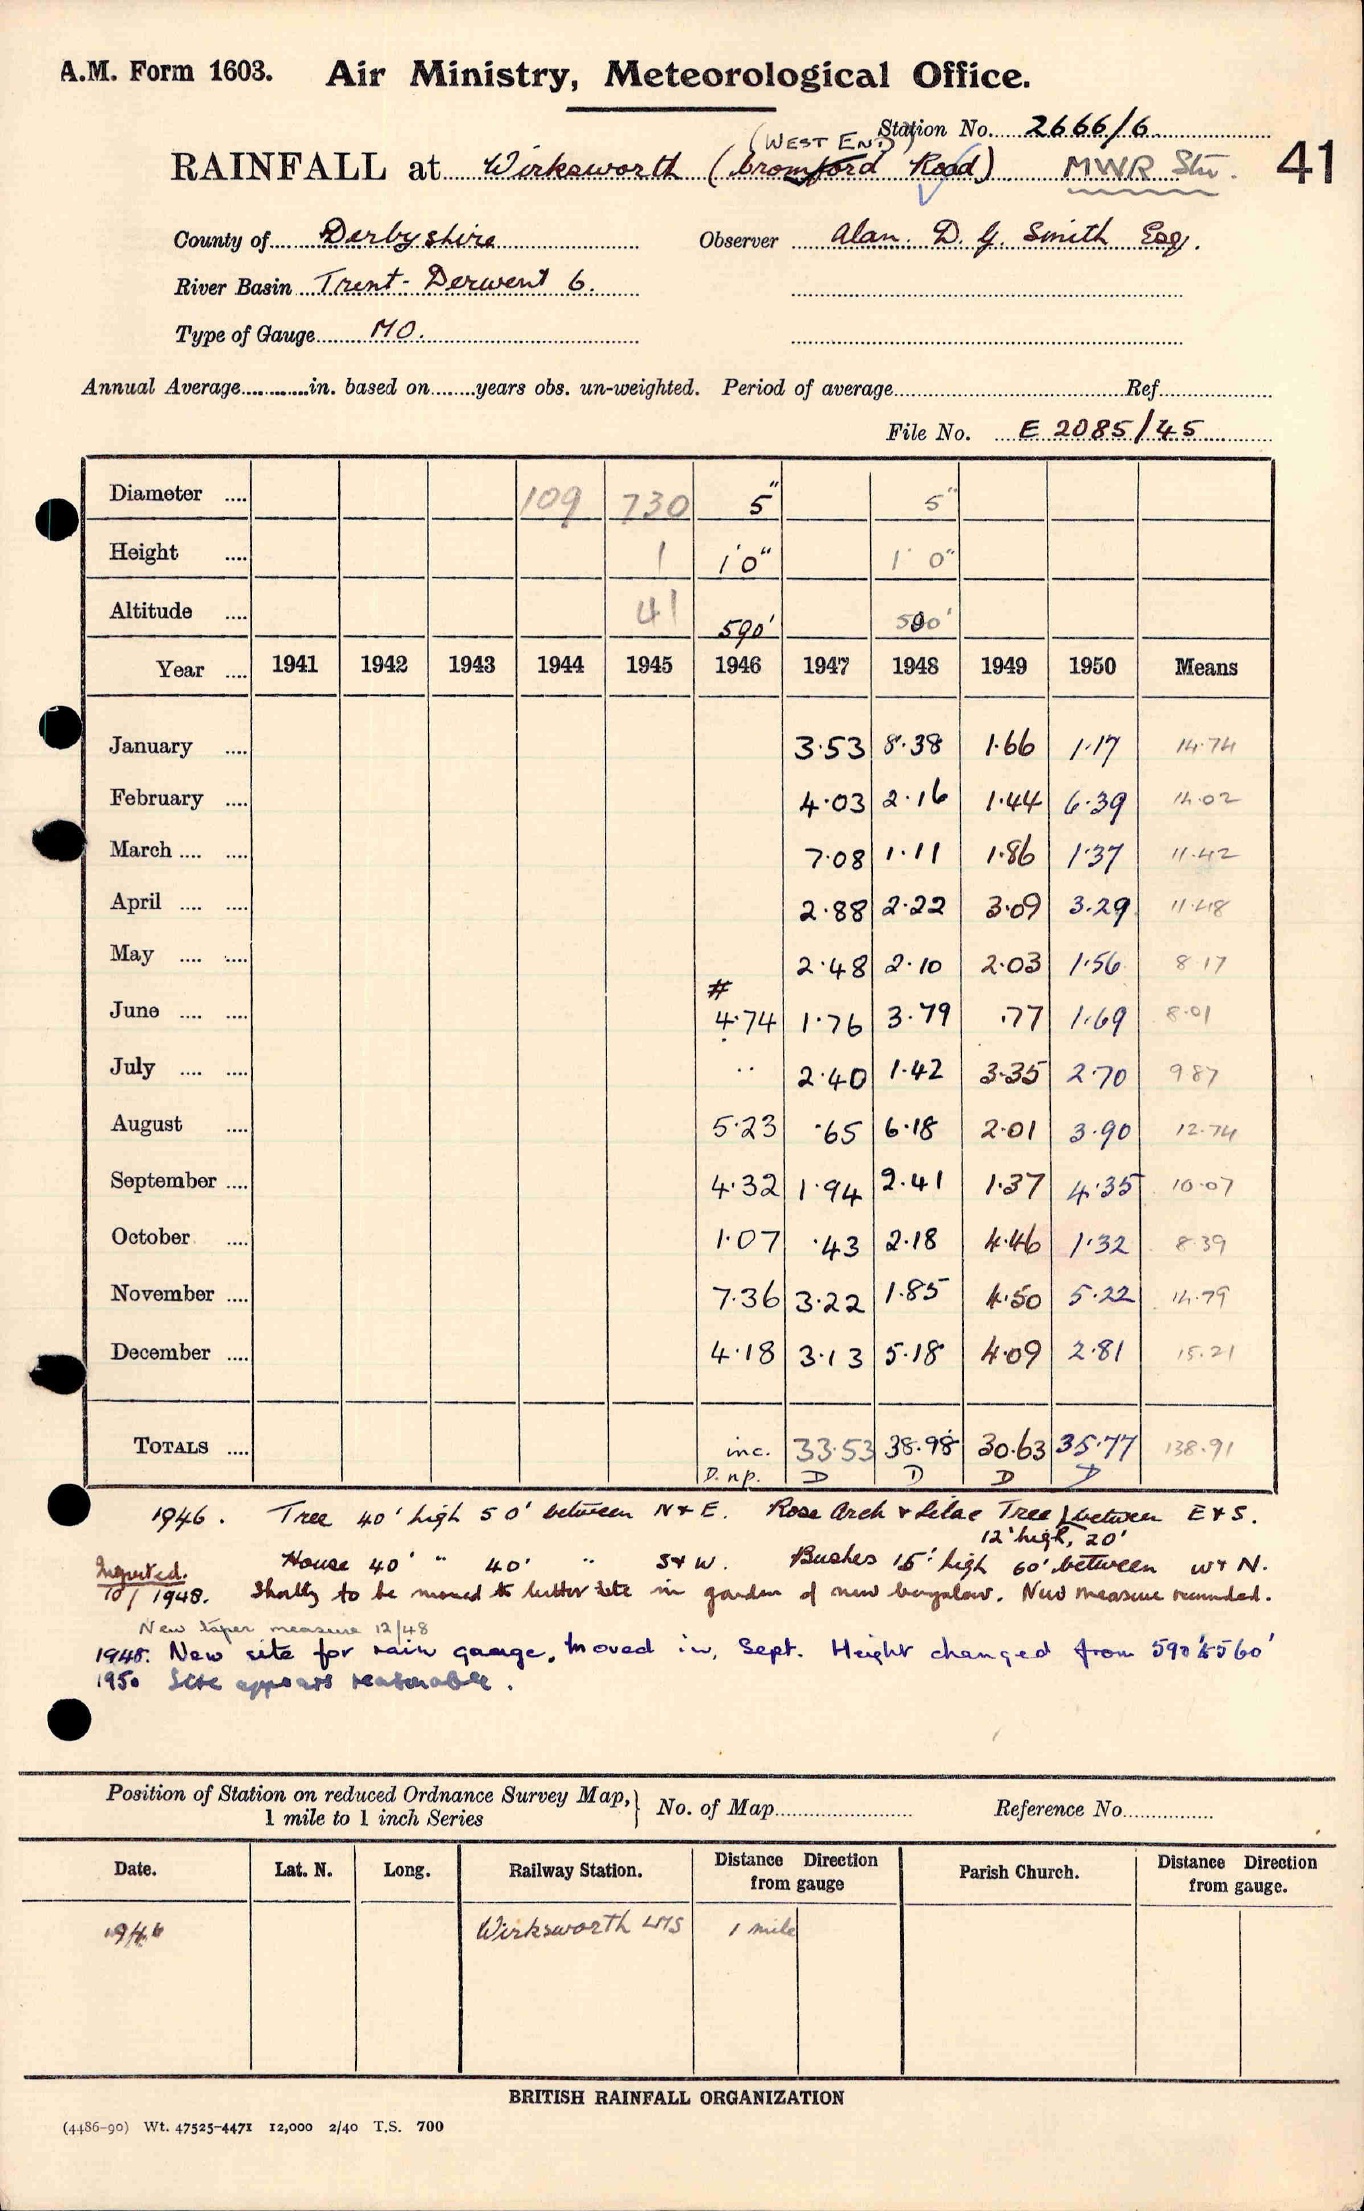 A.M. Form 1603. Air Ministry, Meteorological Office.
Station No. 2666/6
(WEST END)
RAINFALL at Wirksworth (Cromford Road) MWR Stn. 41
County of Derbyshire Observer Alan. D. G. Smith Esq.
River Basin Trent-Derwent 6.
Type of Gauge MO.
Annual Average............in. based on.......years obs. un-weighted. Period of average.......... Ref..........
File No. E 2085/45
Diameter .... 109 730 5" 5"
Height .... 1 1'0" 1'0"
Altitude .... 41 590' 590'
Year .... 1941 1942 1943 1944 1945 1946 1947 1948 1949 1950 Means
January .... 3.53 8.38 1.66 1.17 14.74
February .... 4.03 2.16 1.44 6.39 14.02
March .... .... 7.08 1.11 1.86 1.37 11.42
April .... .... 2.88 2.22 3.09 3.29 11.48
May .... .... 2.48 2.10 2.03 1.56 8.17
#
June .... .... 4.74 1.76 3.79 .77 1.69 8.01
July .... .... .. 2.40 1.42 3.35 2.70 9.87
August .... 5.23 .65 6.18 2.01 3.90 12.74
September .... 4.32 1.94 2.41 1.37 4.35 10.07
October .... 1.07 .43 2.18 4.46 1.32 8.39
November .... 7.36 3.22 1.85 4.50 5.22 14.79
December .... 4.18 3.13 5.18 4.09 2.81 15.21
TOTALS .... inc. 33.53 38.98 30.63 35.77 138.91
D. n.p. D D D D
1946. Tree 40' high 50' between N & E. Rose Arch & Lilac Tree between E & S.
12' high, 20'
House 40' " 40' " S & W. Bushes 15' high 60' between W & N.
Inspected.
10/1948. Shortly to be moved to better site in garden of new bungalow. New measure recmnded.
New taper measure 12/48
1948. New site for rain gauge, moved in, Sept. Height changed from 590' to 560'
1950 Site appears reasonable.
Position of Station on reduced Ordnance Survey Map,} No. of Map.......... Reference No..........
1 mile to 1 inch Series
Date. Lat. N. Long. Railway Station. Distance Direction from gauge Parish Church. Distance Direction from gauge.
1946 Wirksworth LMS 1 mile
BRITISH RAINFALL ORGANIZATION
(4486-90) Wt. 47525-4471 12,000 2/40 T.S. 700